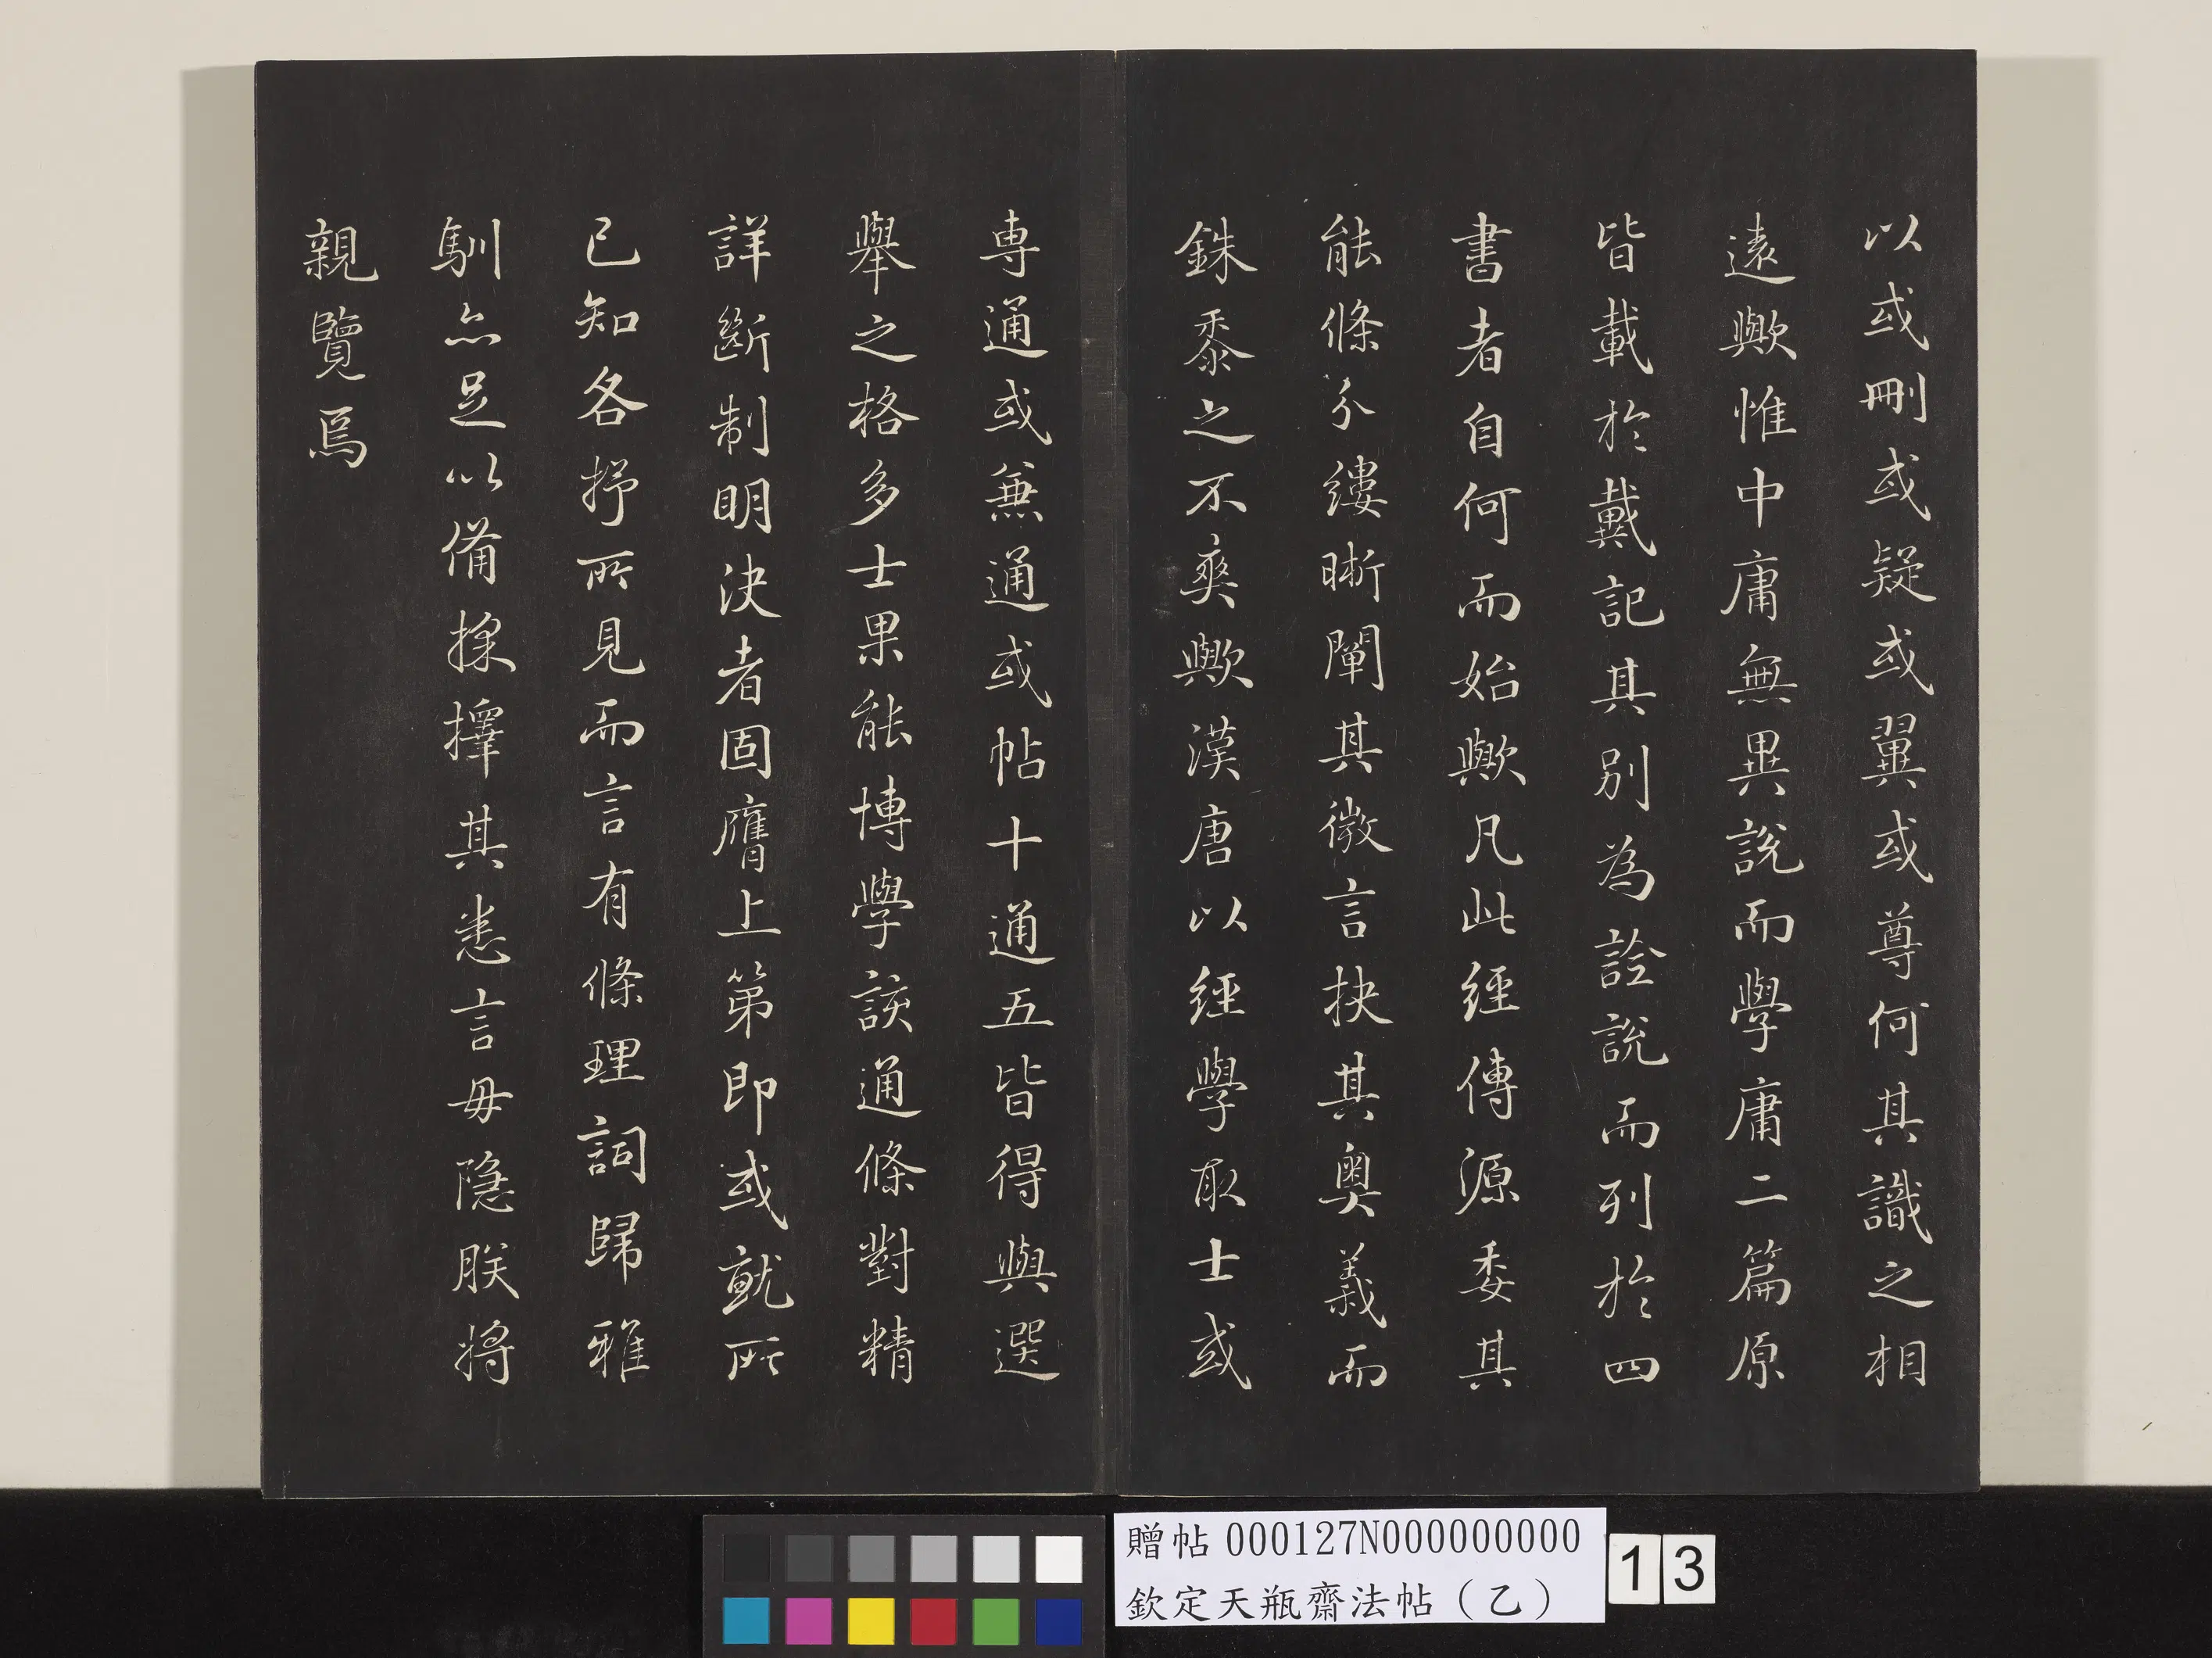 以或刪或疑或翼或尊何其識之相
遠歟惟中庸無異說而學庸二篇原
皆載於戴記其別為詮說而列於四
書者自何而始歟凡此經傳源委其
能條分縷晰闡其微言抉其奧義而
銖黍之不爽歟漢唐以經學取士或
專通或兼通或帖十通五皆得與選
舉之格多士果能博學該通條對精
詳斷制明決者固膺上第即或就所
已知各抒所見而言有條理詞歸雅
馴亦足以備採擇其悉言毋隱朕將
親覽焉
贈帖 000127N000000000
欽定天瓶齋法帖（乙）
13